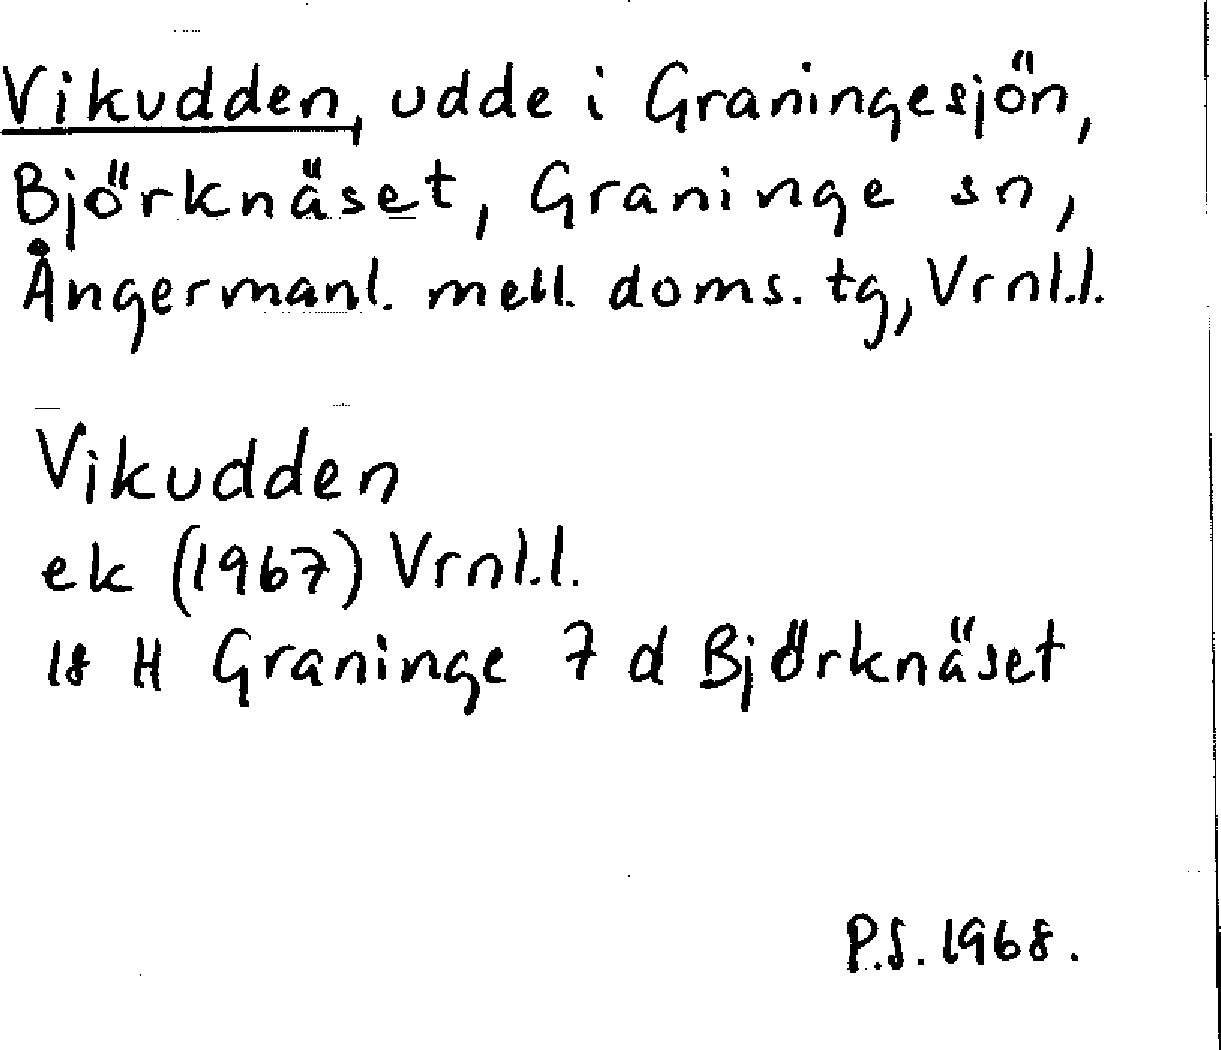 Vikudden, udde i Graningesjön,
Björknäset, Graninge sn,
Ångermanl. mell. doms. tg, Vrnl.l.
Vikudden
ek (1967) Vrnl.l.
18 H Graninge 7 d Björknäset
P.S. 1968.